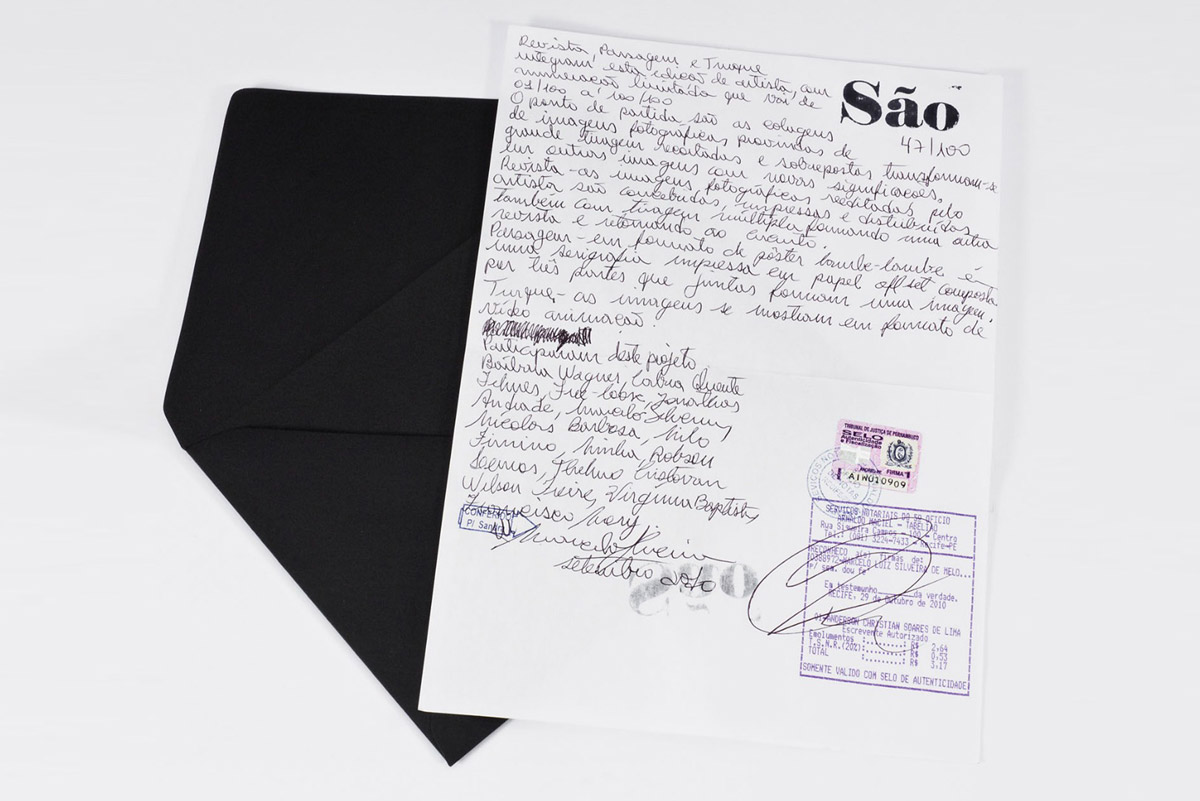 Revista, Passagem e Truque
integram esta edição de artista, com
numeração limitada que vai de
01/100 a 100/100
O ponto de partida são as colagens
de imagens fotográficas provindas de
grande tiragem recortadas e sobrepostas transformam-se
em outras imagens com novas significações.
Revista - as imagens fotográficas reeditadas pelo
artista são concebidas, impressas e distribuídas
também com tiragem múltipla formando uma outra
revista e retornando ao circuito.
Passagem - em formato de pôster lambe-lambe, é
uma serigrafia impressa em papel offset composta
por três partes que juntas formam uma imagem.
Truque - as imagens se mostram em formato de
vídeo animação.
Participaram deste projeto
Bárbara Wagner, Cabra Quente
Filmes, Jonathas
Andrade, Marcelo Silveira,
Nicolas Barbosa, Nilo
Firmino, Robson
Lemos, Thelmo Cristovam
Wilson Freire, Virginia Baptista,
Francisco
setembro 2010
São
47/100
TRIBUNAL DE JUSTIÇA DE PERNAMBUCO
SELO
Autenticidade
e Fiscalização
FIRMA 1
AIW010909
CONFERE
P/
SERVIÇOS NOTARIAIS DO 5O OFICIO
ARNALDO MACIEL - TABELIÃO
Rua Siqueira Campos - Centro
Tel.: (081) 3224-7433 - Recife-PE
RECONHEÇO a(s) firmas de:
MARCELO LUIZ SILVEIRA DE MELO...
dou fé
Em testemunho ____ da verdade.
RECIFE, 29 de outubro de 2010
ANDERSON CHRISTIAN SOARES DE LIMA
Escrevente Autorizado
Emolumentos R$ 2,64
T.S.N.R.(20%) R$ 0,53
TOTAL R$ 3,17
SOMENTE VALIDO COM SELO DE AUTENTICIDADE
São